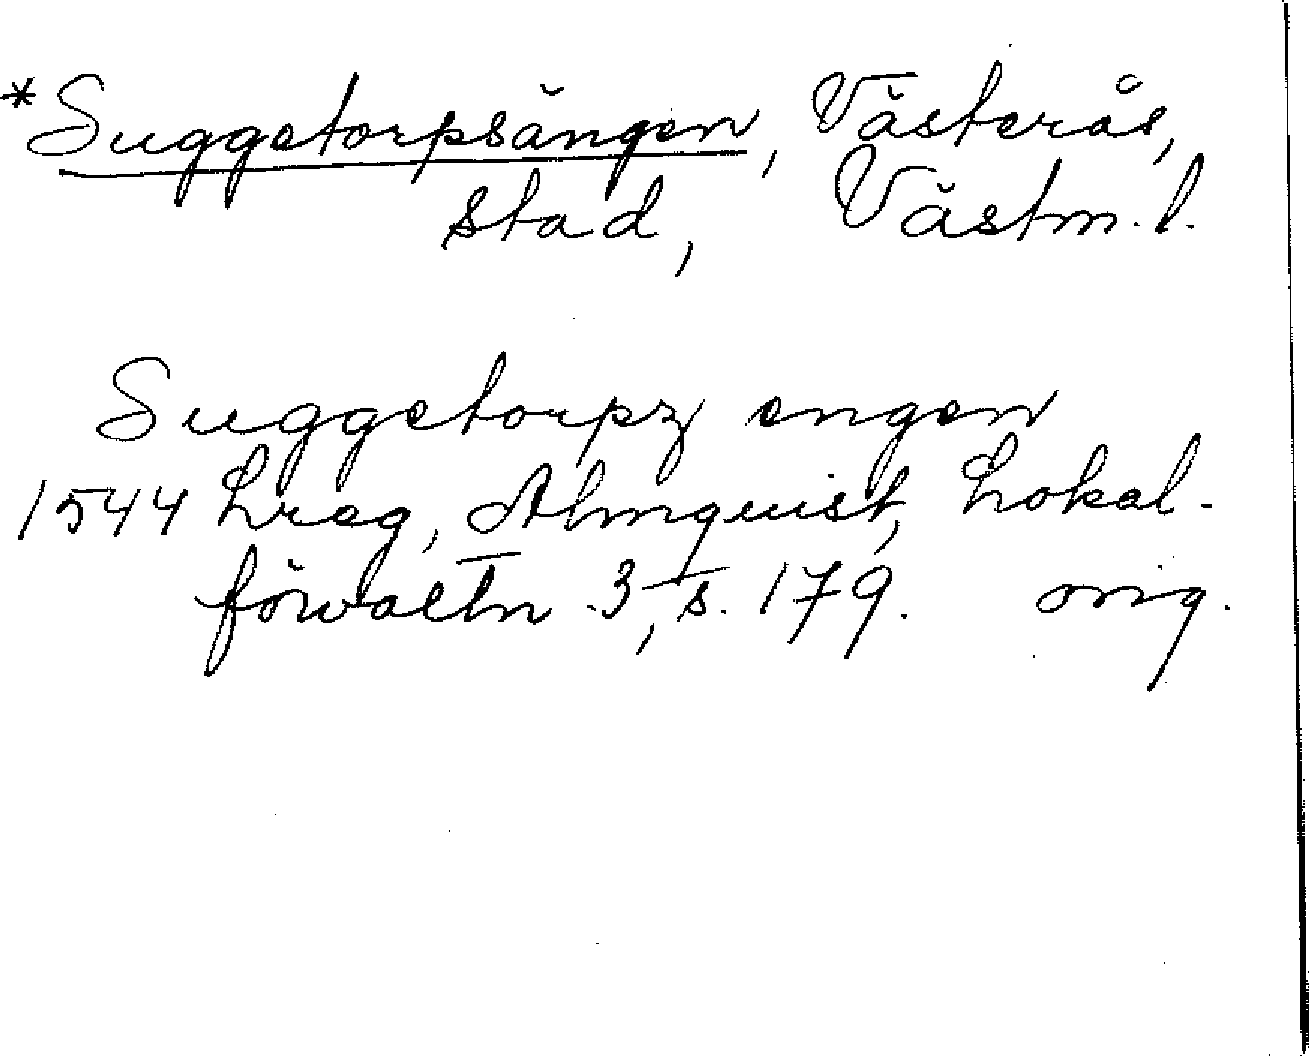 *Suggetorpsängen, Västerås,
stad, Västm. l.
Suggetorpz engen
1544 Lreg, Almquist, Lokal-
förvaltn 3, s. 179. orig.